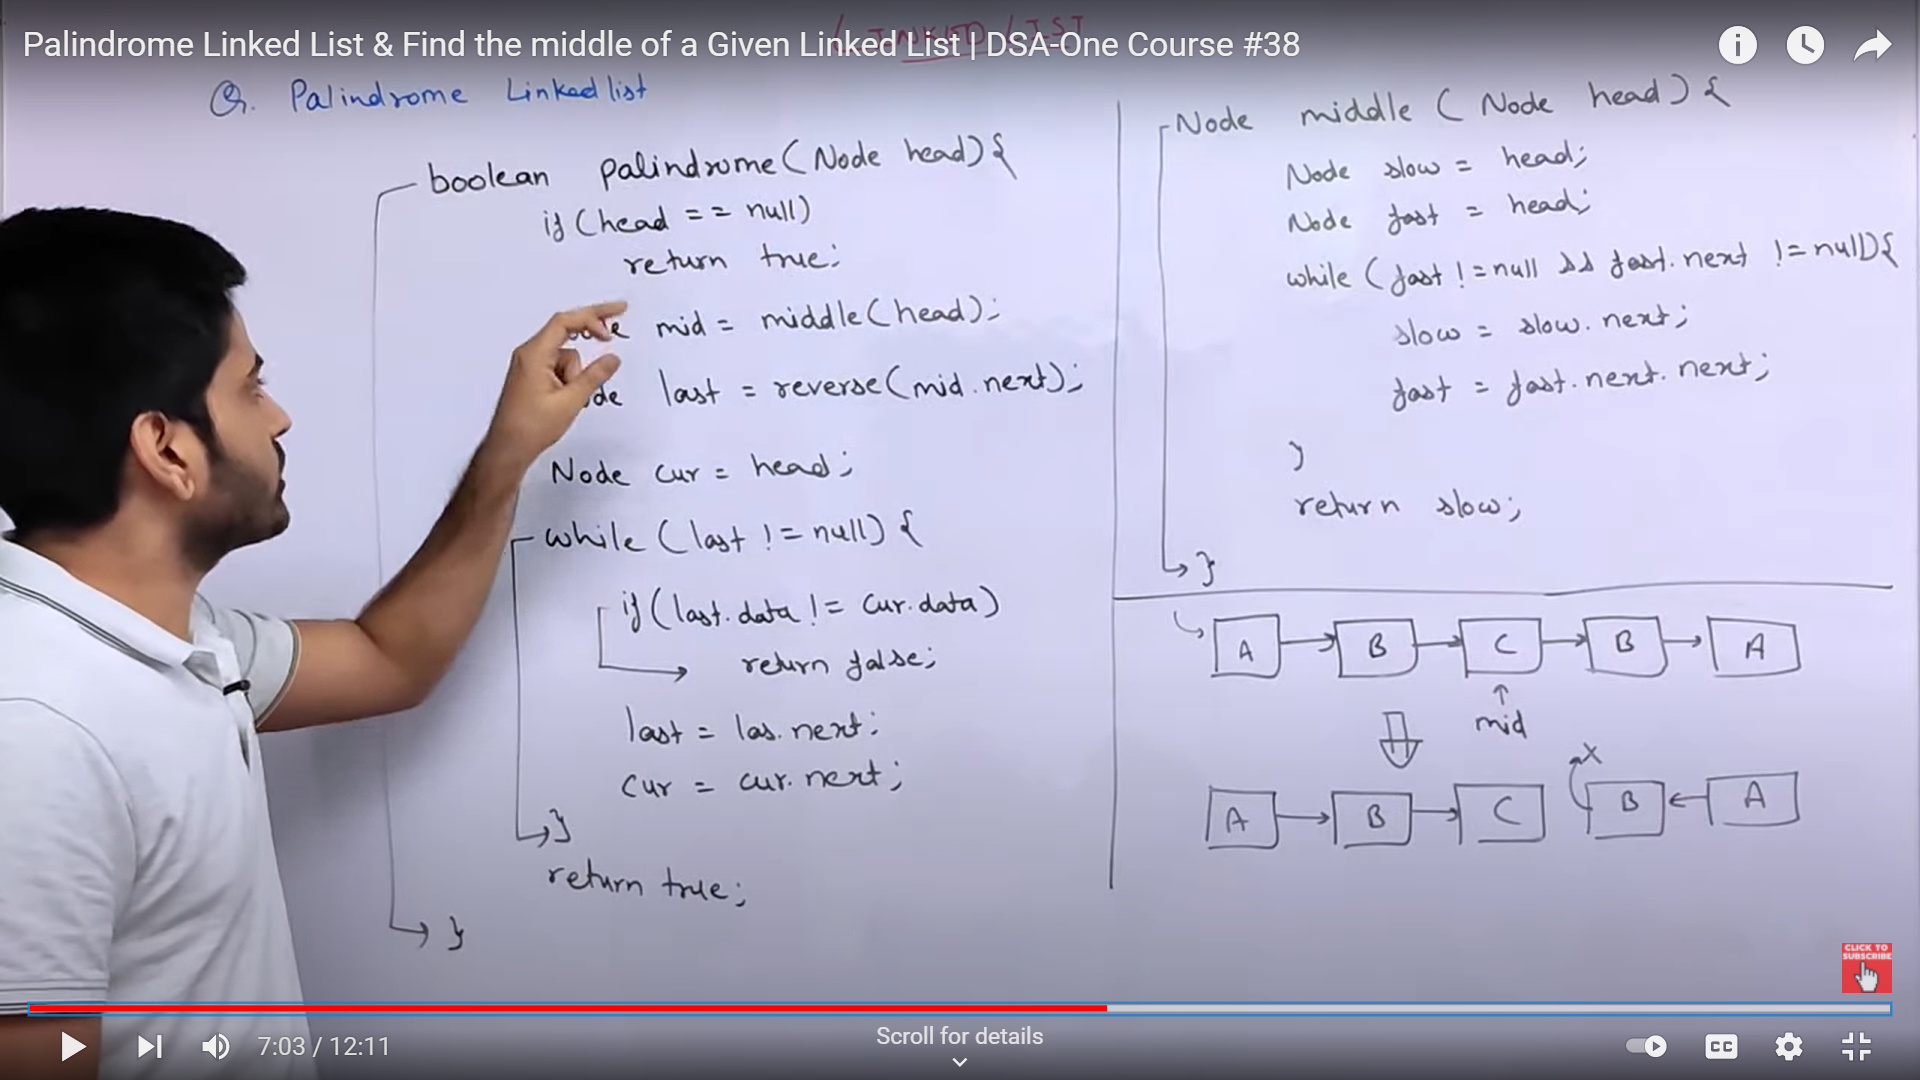 Palindrome Linked List & Find the middle of a Given Linked List | DSA-One Course #38
LINKED LIST
Q. Palindrome Linkedlist
boolean palindrome(Node head){
if(head == null)
return true;
mid = middle(head);
last = reverse(mid.next);
Node cur = head;
while(last != null) {
if(last.data != cur.data)
return false;
last = las.next;
cur = cur.next;
}
return true;
}
Node middle (Node head) {
Node slow = head;
Node fast = head;
while(fast != null && fast.next != null){
slow = slow.next;
fast = fast.next.next;
}
return slow;
}
A B C B A
mid
X
A B C B A
CLICK TO
SUBSCRIBE
7:03 / 12:11
Scroll for details
CC